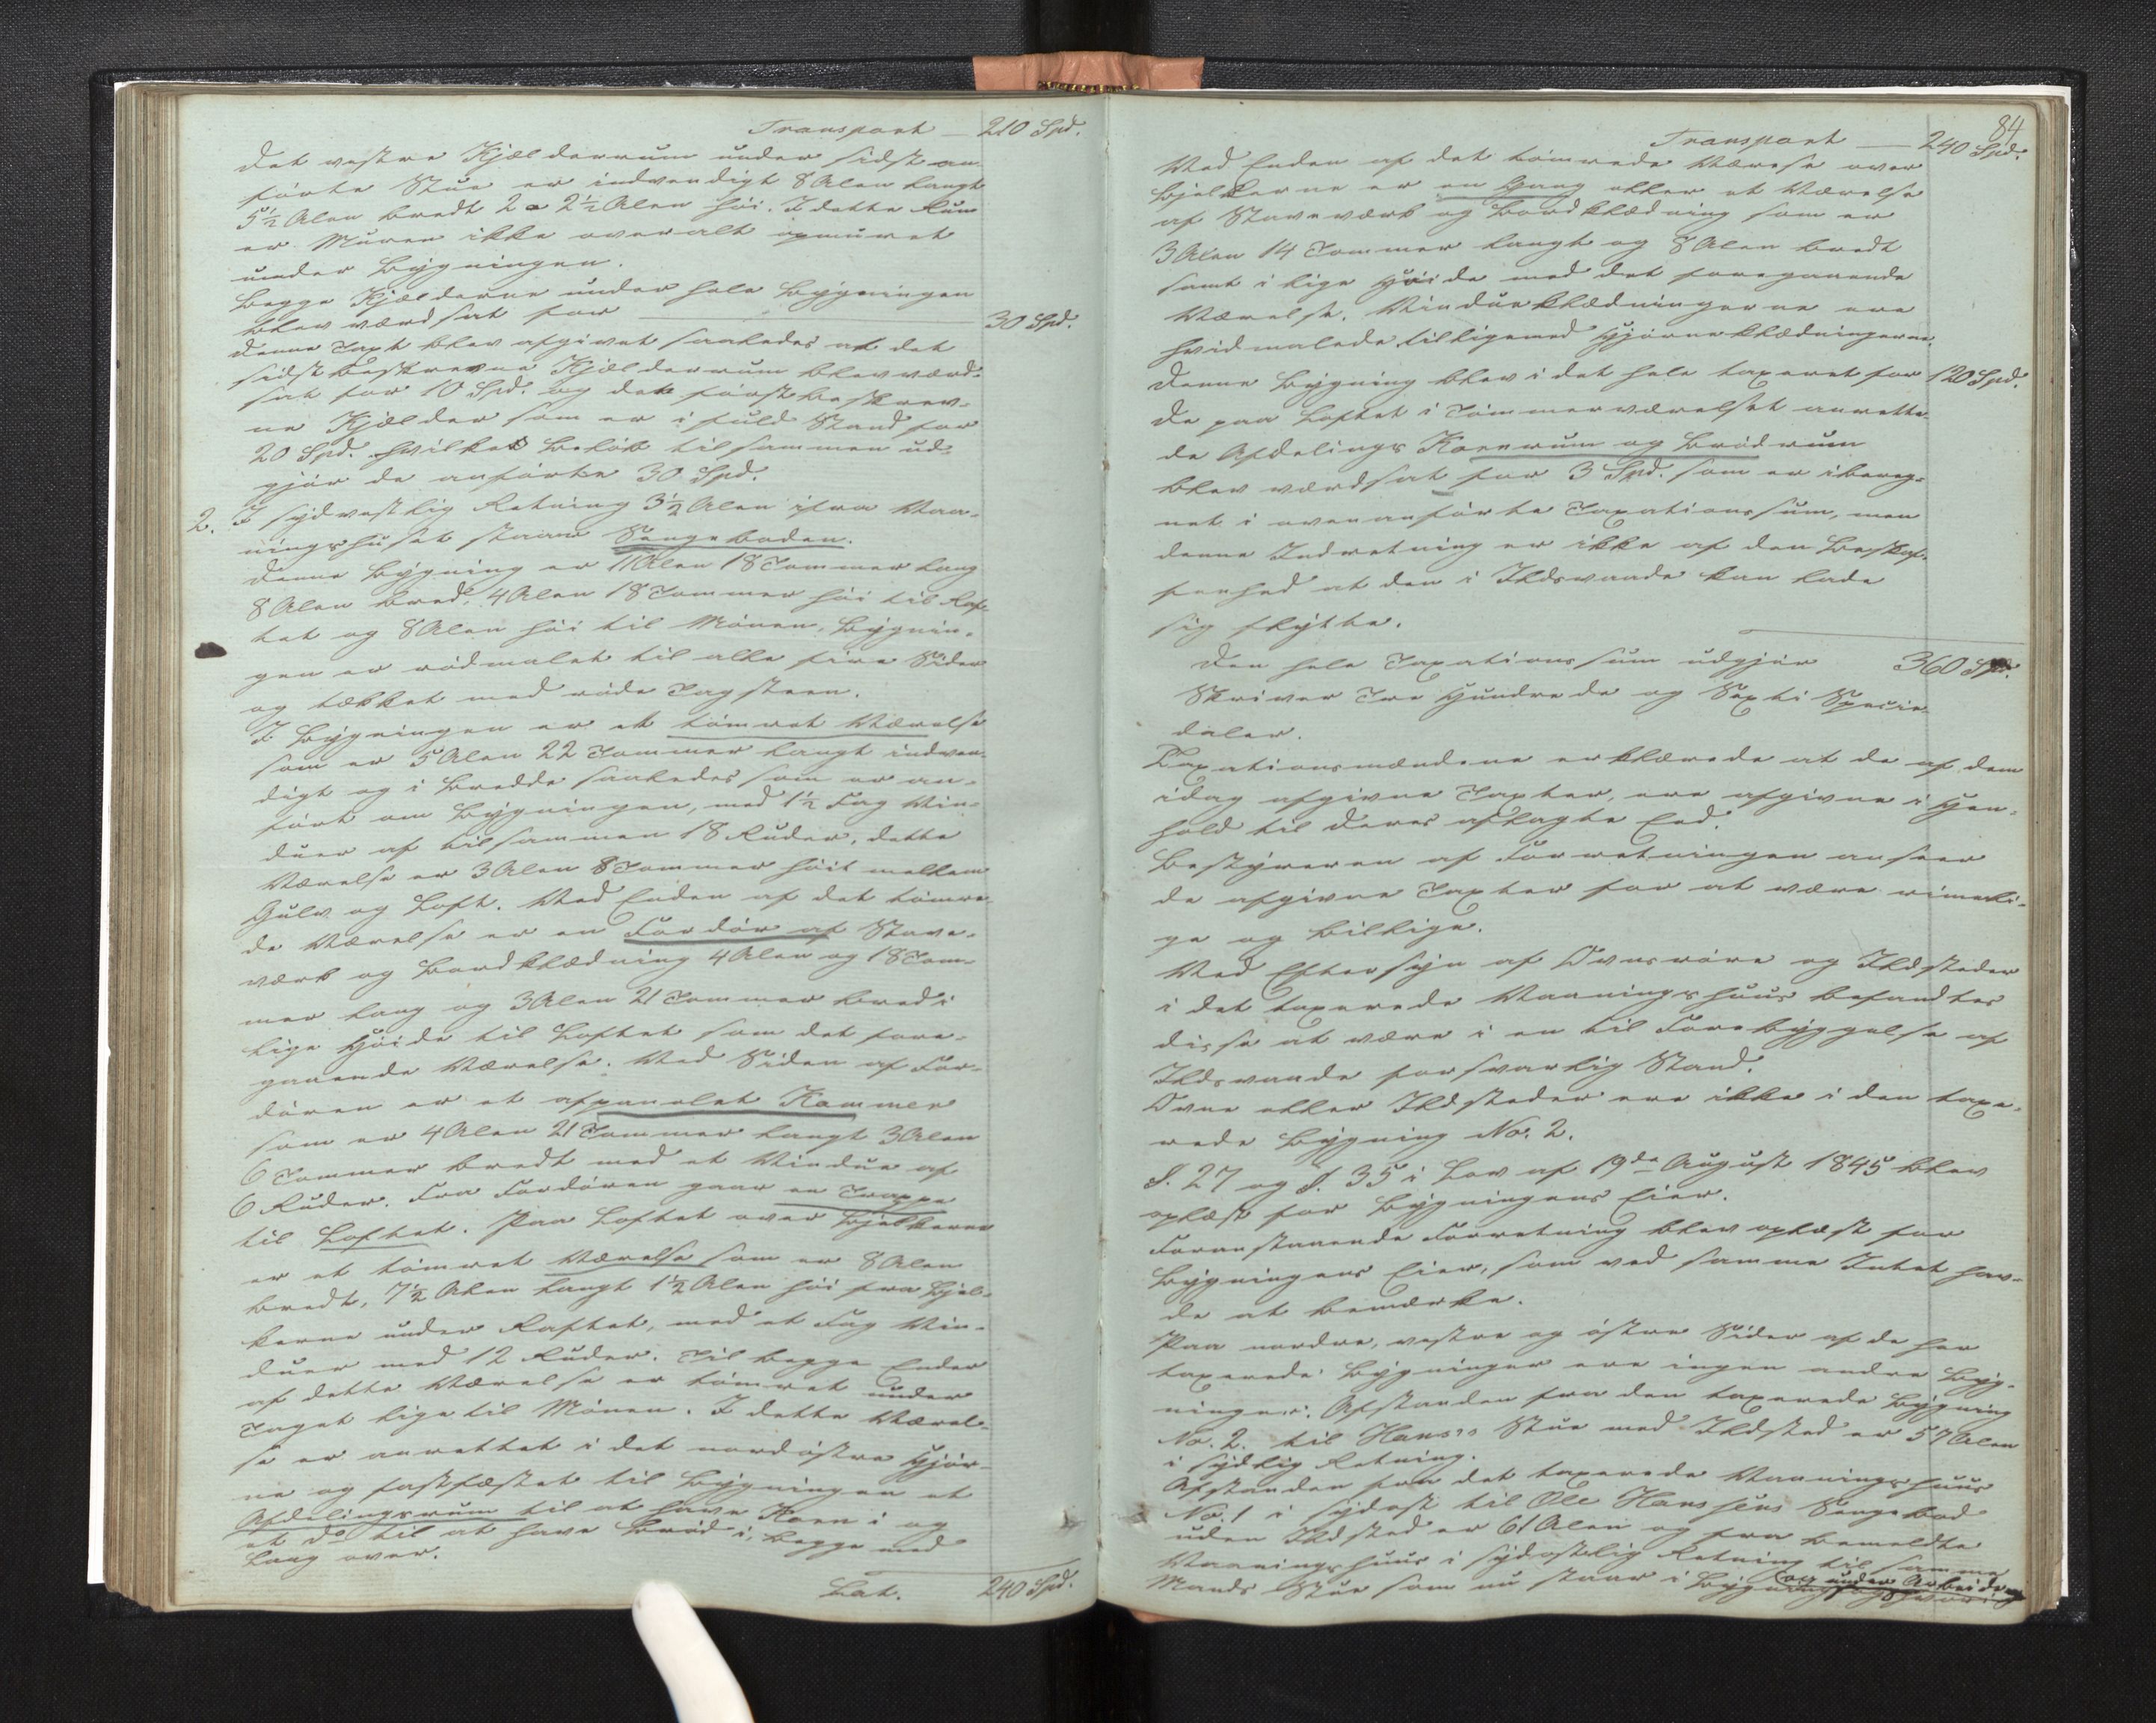 Transport — 210 Spd.
det vestre Kjælderrum under sidst an-
førte Stue er indvendigt 8 Alen langt
5½ Alen bredt 2 a 2½ Alen høi. I dette Rum
er Muren ikke overalt opmuret
under Bygningen.
Begge Kjælderne under hele Bygningen
blev værdsat for — 30 Spd.
Denne Taxt blev afgivet saaledes at det
sidst beskrevne Kjælderrum blev værd-
sat for 10 Spd. og det først beskrev-
ne Kjælder som er i fuld Stand for
20 Spd. hvilket Beløb tilsammen ud-
gjør de anførte 30 Spd.
2. I sydvestlig Retning 3½ Alen ifra Vaa-
ningshuset staar Sengeboden.
Denne Bygning er 11 Alen 18 Tommer lang
8 Alen bred, 4 Alen 18 Tommer høi til Raf-
tet og 8 Alen høi til Mønen, Bygnin-
gen er rødmalet til alle fire Sider
og tækket med røde Tagsteen.
I Bygningen er et tømret Værelse
som er 5 Alen 22 Tommer langt indven-
digt og i Bredde saaledes som er an-
ført om Bygningen, med 1½ Fag Vin-
duer af tilsammen 18 Ruder, dette
Værelse er 3 Alen 8 Tommer høit mellem
Gulv og Loft. Ved Enden af det tømre-
de Værelse er en Fordør af Stave-
værk og Bordklædning 4 Alen og 18 Tom-
mer lang og 3 Alen 21 Tommer bred i
lige Høide til Loftet som det fore-
gaaende Værelse. Ved Siden af For-
døren er et afpanelet Kammer
som er 4 Alen 21 Tommer langt 3 Alen
6 Tommer bredt med et Vindue af
6 Ruder. Fra Fordøren gaar en Trappe
til Loftet. Paa Loftet over Bjelkerne
er et tømret Værelse som er 8 Alen
bredt, 7½ Alen langt 1½ Alen høi fra Bjel-
kerne under Raftet, med et Fag Vin-
duer med 12 Ruder. Til begge Ender
af dette Værelse er tømret under
Taget lige til Mønen. I dette Værel-
se er anrettet i det nordøstre Hjør-
ne og fastfæstet til Bygningen et
Afdelingsrum til at have Korn i og
et do til at have Brød i, begge med
Laag over.
Lat. 240 Spd.
84
Transport — 240 Spd.
Ved Enden af det tømrede Værelse over
Bjelkerne er en Gang eller et Værelse
af Staveværk og Bordklædning som er
3 Alen 14 Tommer langt og 8 Alen bredt
samt i lige Høide med det foregaaende
Værelse. Vindueklædningerne ere
hvidmalede tilligemed Hjørneklædningerne.
Denne Bygning blev i det hele taxeret for 120 Spd.
De paa Loftet i Tømmerværelset anrette-
de Afdelings Kornrum og Brødrum
blev værdsat for 3 Spd. som er ibereg-
net i ovenanførte Taxationssum, men
denne Indretning er ikke af den Beskaf-
fenhed at den i Ildsvaade kan lade
sig flytte.
Den hele Taxationssum udgjør 360 Spd.
Skriver Tre Hundrede og Sexti Specie-
daler.
Taxationsmændene erklærede at de af dem
idag afgivne Taxter, ere afgivne i Hen-
hold til deres aflagte Eed.
Bestyreren af Forretningen anseer
de afgivne Taxter for at være rimeli-
ge og billige.
Ved Eftersyn af Ovnsrøre og Ildsteder
i det taxerede Vaaningshuus befandtes
disse at være i en til Forebyggelse af
Ildsvaade forsvarlig Stand.
Ovne eller Ildsteder ere ikke i den taxe-
rede Bygning No. 2.
§. 27 og §. 35 i Lov af 19de August 1845 blev
oplæst for Bygningens Eier.
Foranstaaende Forretning blev oplæst for
Bygningens Eier, som ved samme Intet hav-
de at bemærke.
Paa nordre, vestre og østre Sider af de her
taxerede Bygninger ere ingen andre Byg-
ninger. Afstanden fra den taxerede Bygning
No. 2. til Hans's Stue med Ildsted er 57 Alen
i sydlig Retning.
Afstanden fra det taxerede Vaaningshuus
No. 1 i sydost til Ole Hanssens Sengebod
uden Ildsted er 61 Alen og fra bemeldte
Vaaningshuus i sydostlig Retning til samme
Mands Stue som nu staar i Bygning og under Arbeide og